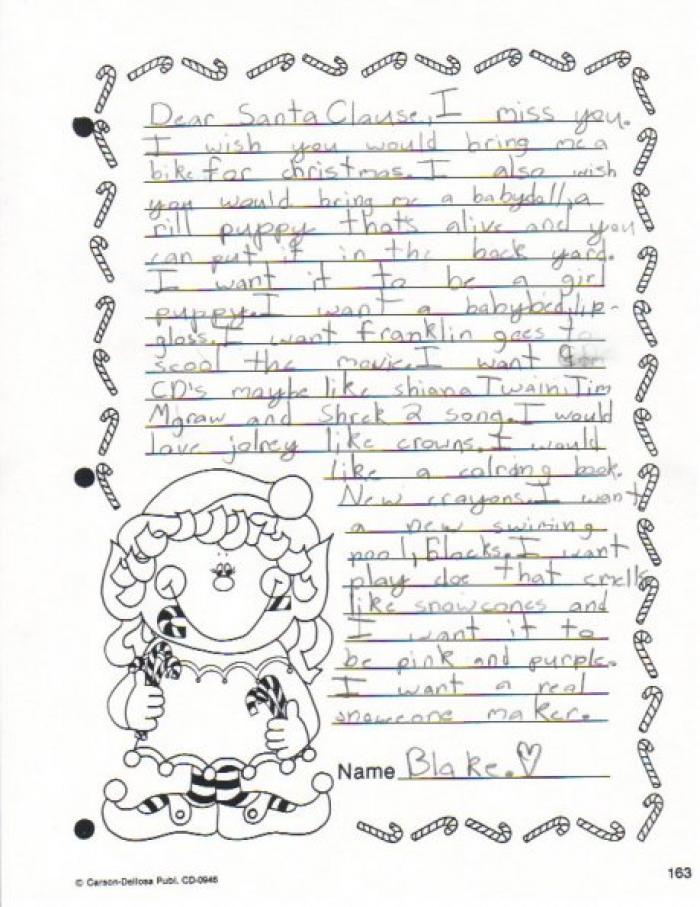 Dear Santa Clause, I miss you.
I wish you would bring me a
bike for christmas. I also wish
you would bring me a babydoll, a
rill puppy that's alive and you
can put it in the back yard.
I want it to be a girl
puppy. I want a babybed, lip-
glass. I want franklin goes to
scool the movie. I want
CD's maybe like shiana Twain, Tim
Mgraw and Shrek 2 song. I would
love jolrey like crowns. I would
like a colrdng book.
New crayons. I want
a new swiming
pool, blacks. I want
play doe that smells
like snowcones and
I want it to
be pink and purple.
I want a real
snowcone maker.
Name Blake.
© Carson-Dellosa Publ. CD-0946
163